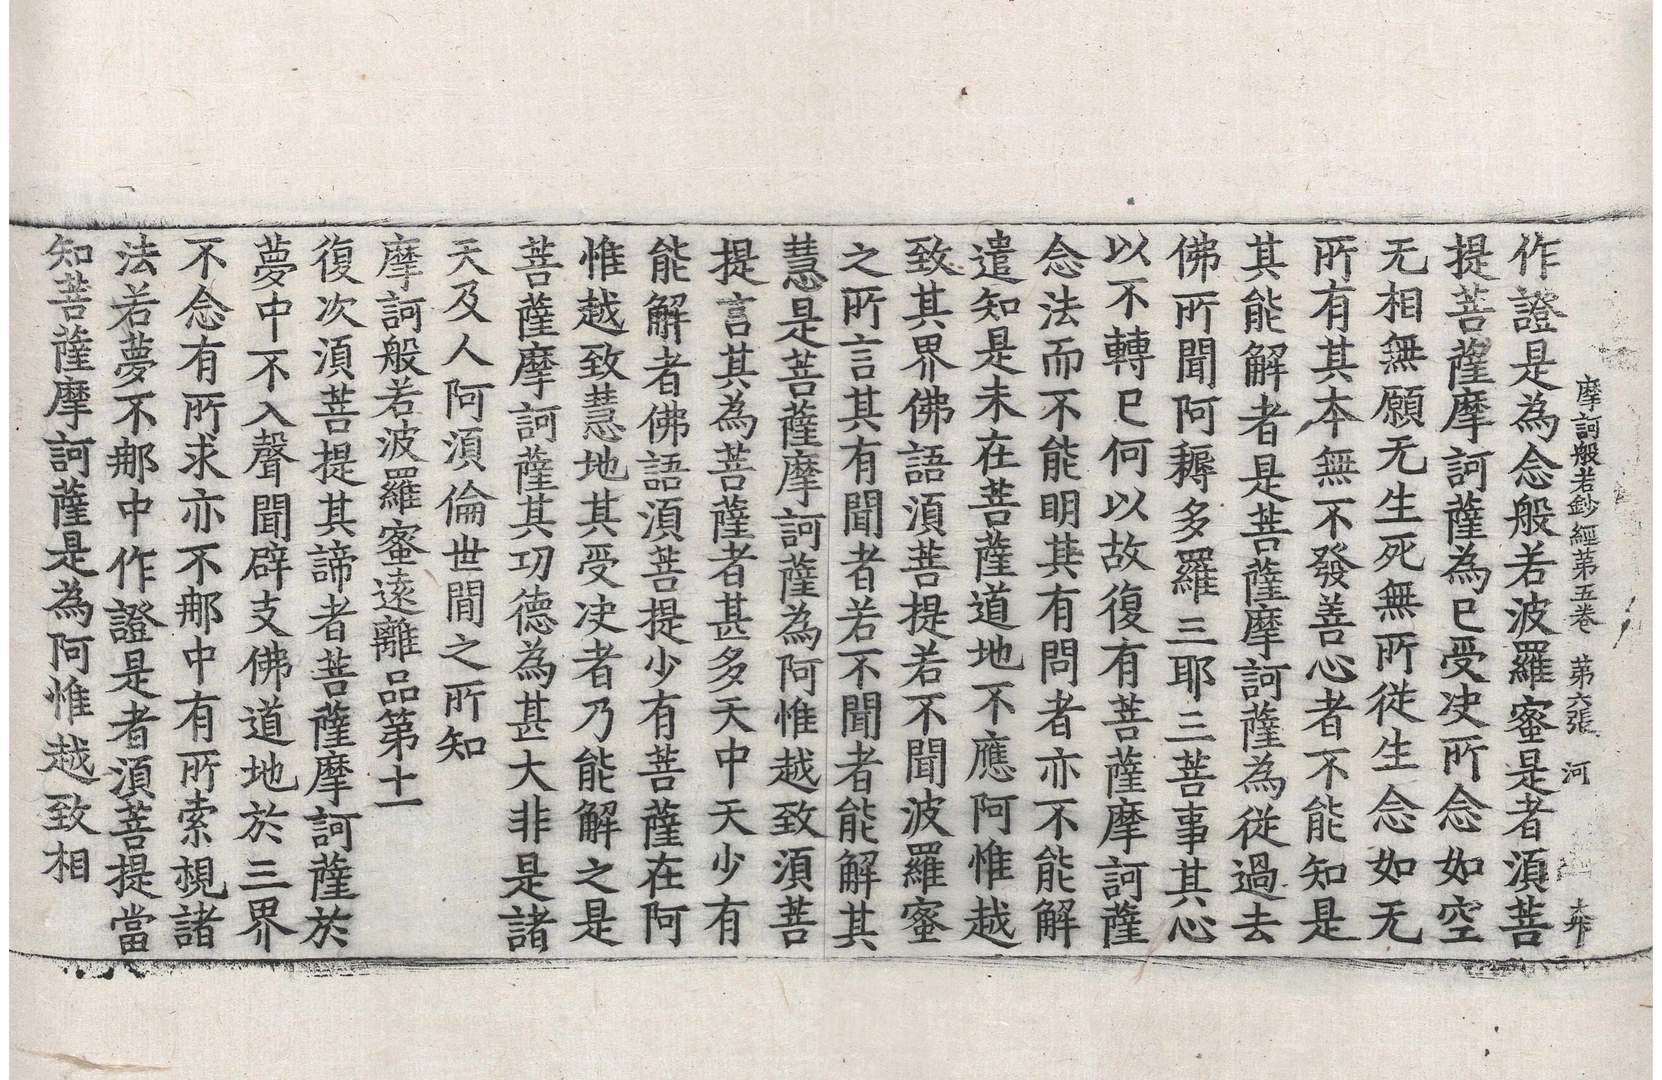 摩訶般若鈔經第五卷　第六張　河
作證是爲念般若波羅蜜是者湏菩
提菩薩摩訶薩爲已受决所念如空
无相無願无生死無所從生念如无
所有其本無不發善心者不能知是
其能解者是菩薩摩訶薩爲從過去
佛所聞阿耨多羅三耶三菩事其心
以不轉已何以故復有菩薩摩訶薩
念法而不能明其有問者亦不能解
遣知是未在菩薩道地不應阿惟越
致其界佛語湏菩提若不聞波羅蜜
之所言其有聞者若不聞者能解其
慧是菩薩摩訶薩爲阿惟越致湏菩
提言其爲菩薩者甚多天中天少有
能解者佛語湏菩提少有菩薩在阿
惟越致慧地其受决者乃能解之是
菩薩摩訶薩其功德爲甚大非是諸
天及人阿湏倫世間之所知
摩訶般若波羅蜜遠離品第十一
復次湏菩提其諦者菩薩摩訶薩於
夢中不入聲聞辟支佛道地於三界
不念有所求亦不那中有所索視諸
法若夢不那中作證是者湏菩提當
知菩薩摩訶薩是爲阿惟越致相